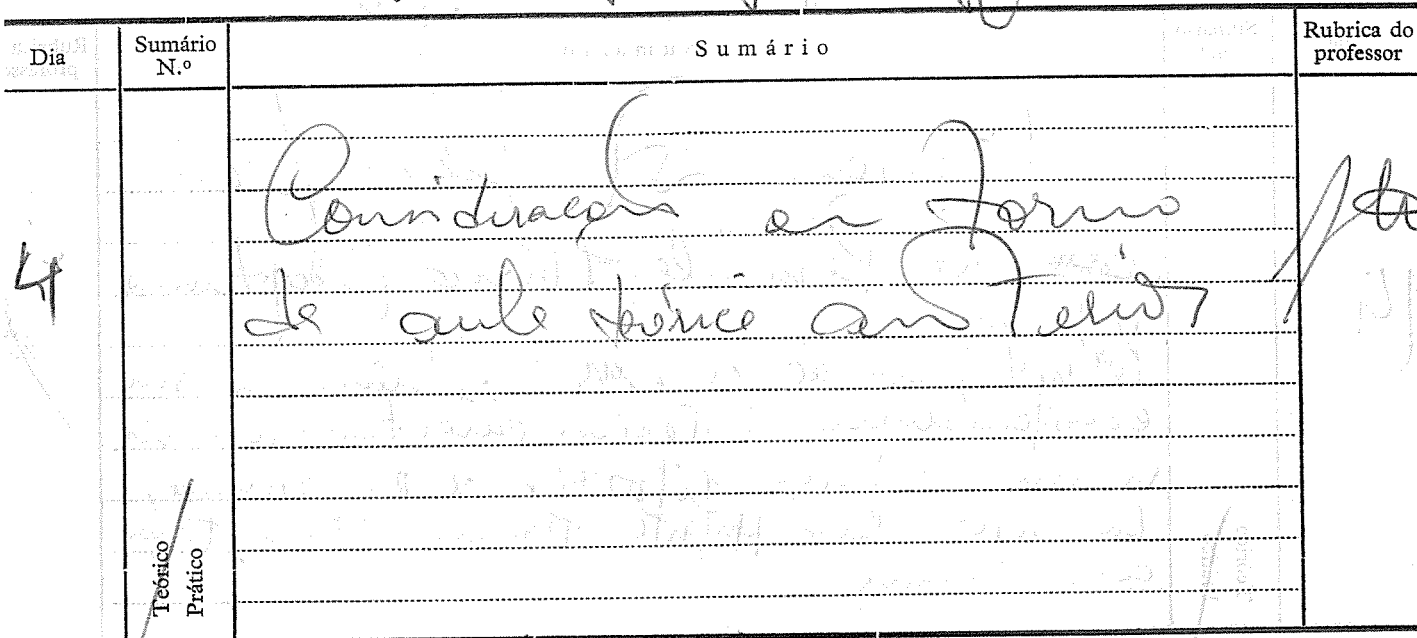 Dia
Sumário N.º
Sumário
Rubrica do professor
4
Considerações em torno
da aula teórica anterior
Teórico
Prático